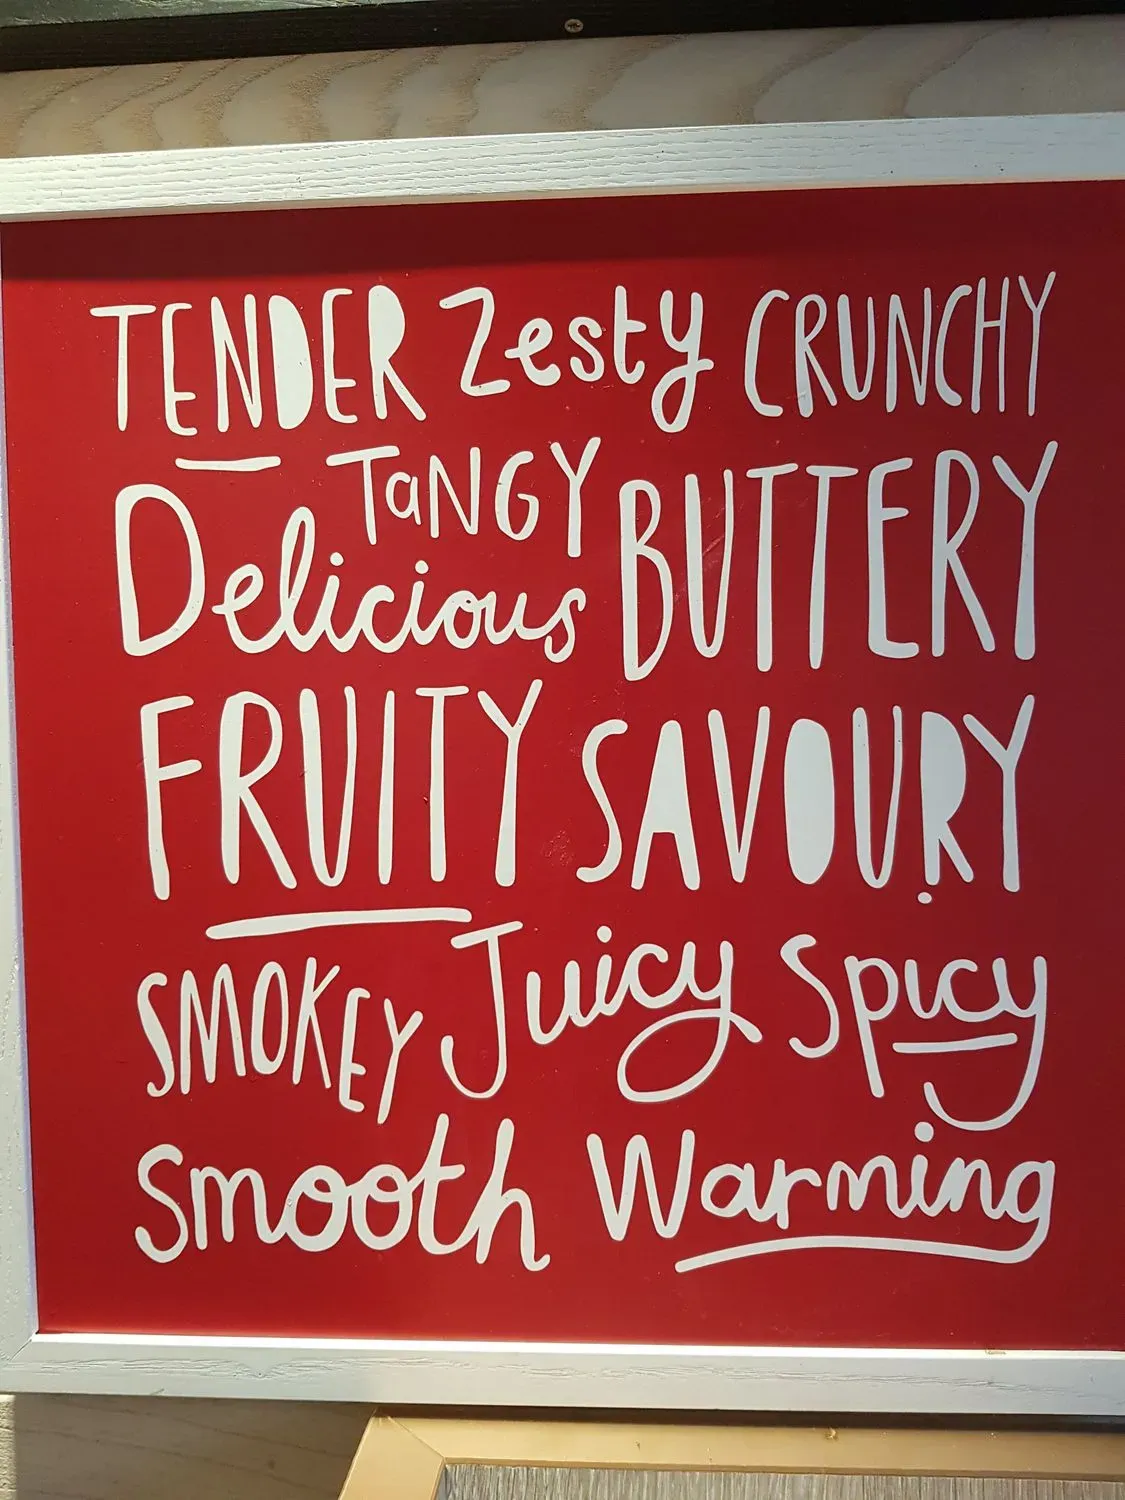 TENDER Zesty CRUNCHY
TaNGY
Delicious BUTTERY
FRUITY SAVOURY
SMOKEY Juicy Spicy
Smooth Warming